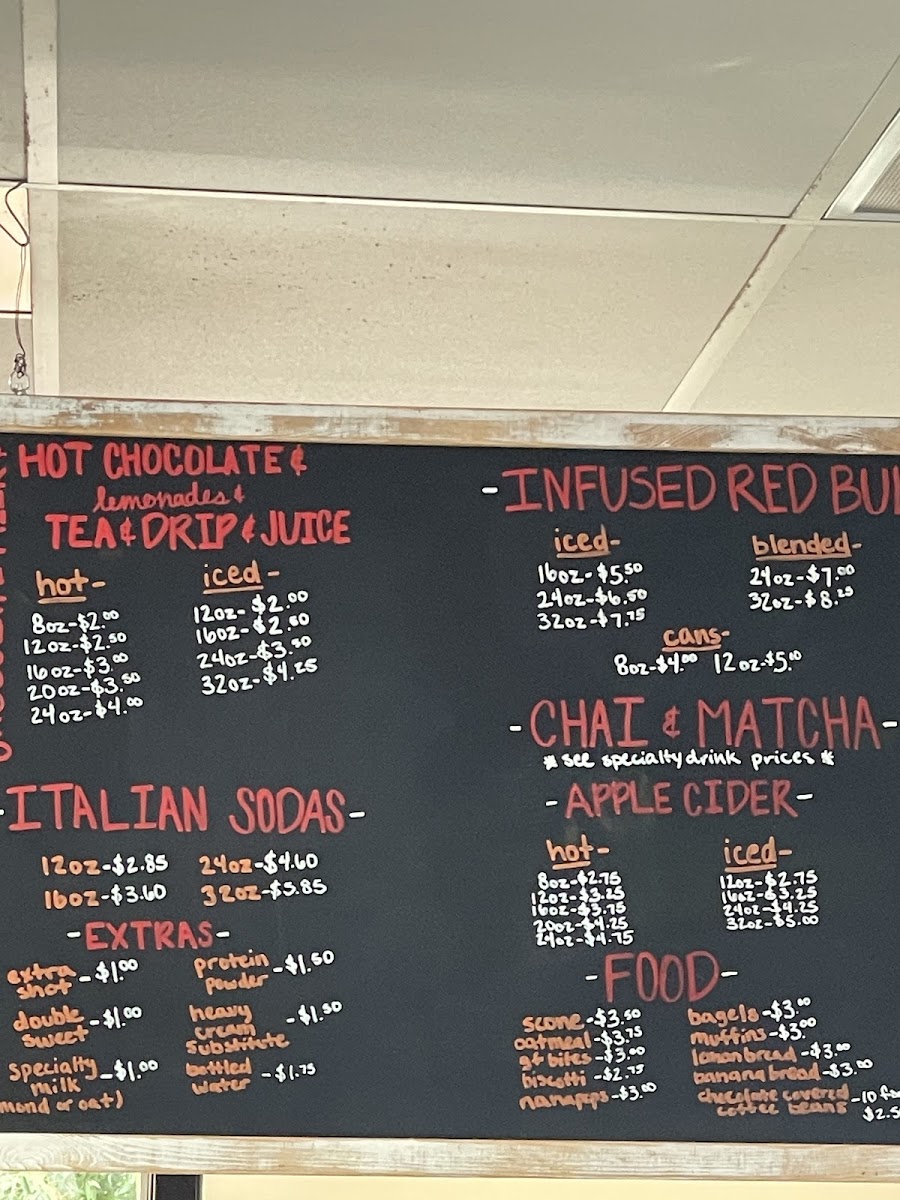 HOT CHOCOLATE &
lemonades &
TEA & DRIP & JUICE
hot-
8oz-$2.00
12oz-$2.50
16oz-$3.00
20oz-$3.50
24oz-$4.00
iced-
12oz-$2.00
16oz-$2.50
24oz-$3.50
32oz-$4.25
-ITALIAN SODAS-
12oz-$2.85 24oz-$4.60
16oz-$3.60 32oz-$5.85
-EXTRAS-
extra shot-$1.00
double sweet-$1.00
specialty milk-$1.00
mond or oat)
protein powder-$1.50
heavy cream substitute-$1.50
bottled water-$1.75
-INFUSED RED BUL
iced-
16oz-$5.50
24oz-$6.50
32oz-$7.75
blended-
24oz-$7.00
32oz-$8.25
cans-
8oz-$4.00 12oz-$5.00
-CHAI & MATCHA-
*see specialty drink prices*
-APPLE CIDER-
hot-
8oz-$2.75
12oz-$3.25
16oz-$3.75
20oz-$4.25
24oz-$4.75
iced-
12oz-$2.75
16oz-$3.25
24oz-$4.25
32oz-$5.00
-FOOD-
scone-$3.50
oatmeal-$3.75
gf bites-$3.00
biscotti-$2.75
nanapops-$3.00
bagels-$3.00
muffins-$3.00
lemon bread-$3.00
banana bread-$3.00
chocolate covered coffee beans-10 fo
$2.5